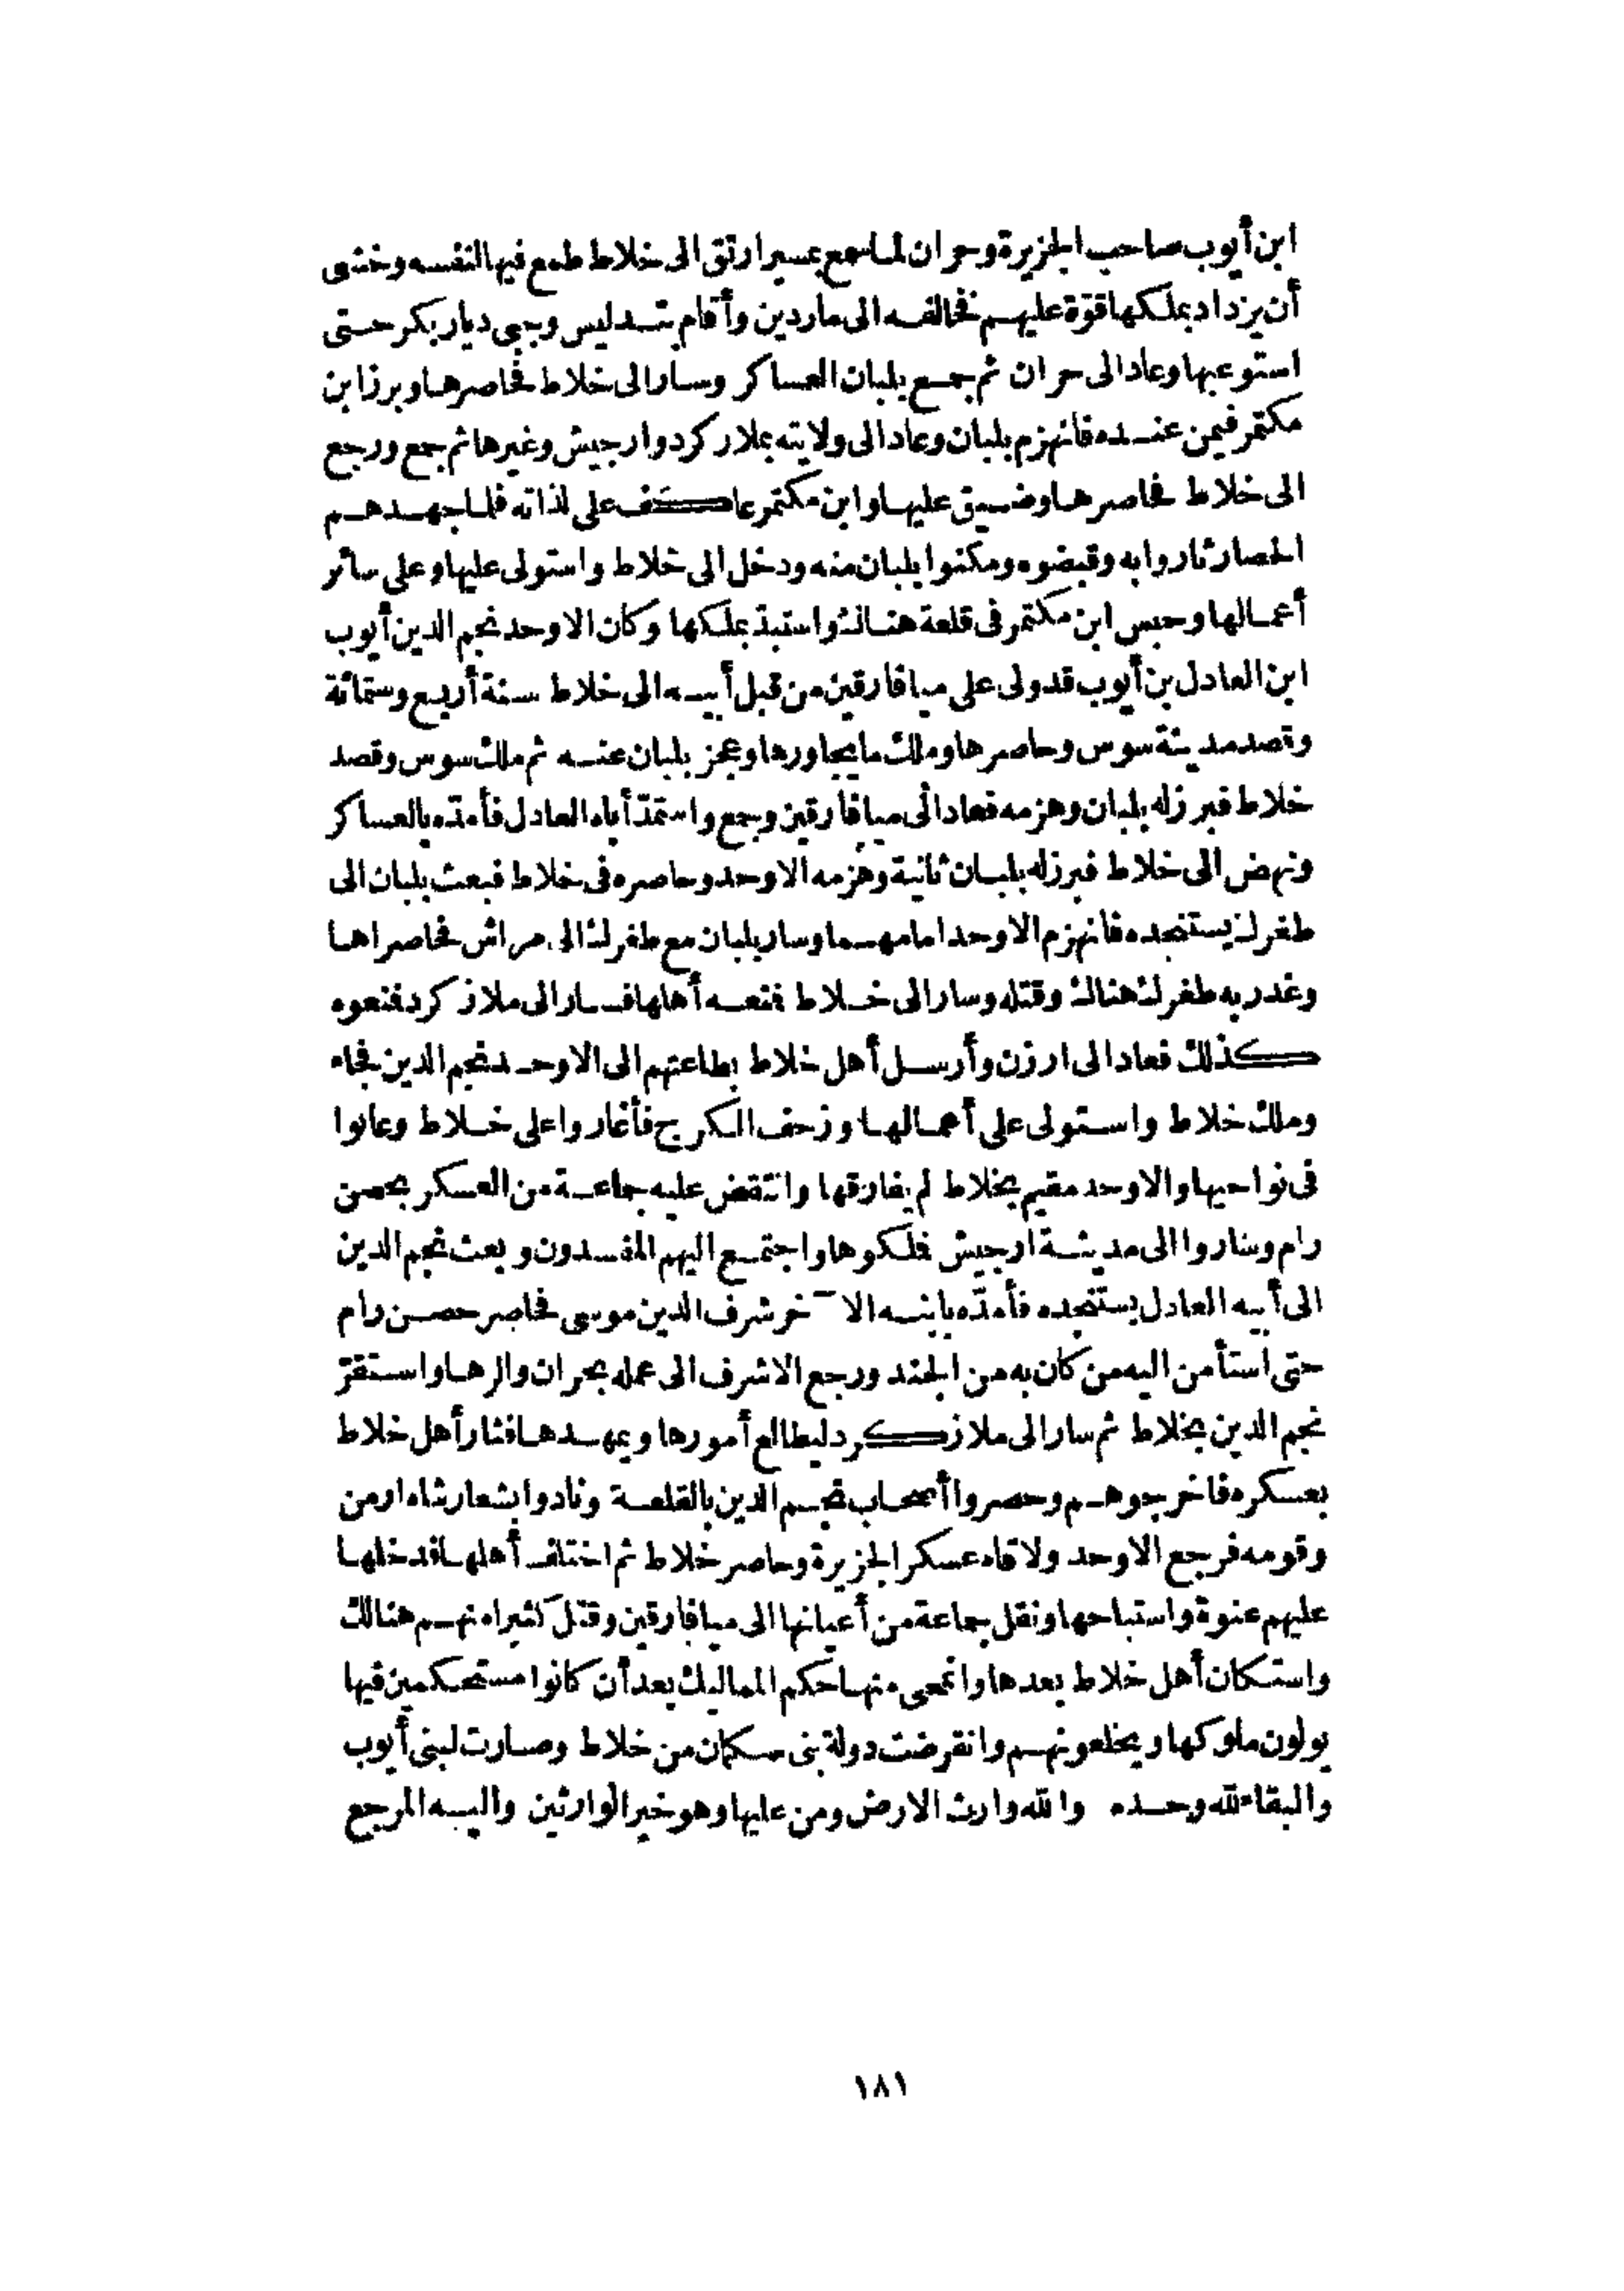 ابن أيوب صاحب الجزيرة وحران لما سمع بمسير ارتق الى خلاط طمع فيها لنفسه وخشى
أن يزداد بملكها قوّة عليهم فخالفه الى ماردين وأقام بتدليس وجبى ديار بكر حتى
استوعبها وعاد الى حران ثم جمع بلبان العساكر وسار الى خلاط فحاصرها وبرز ابن
مكتمر فيمن عنده فانهزم بلبان وعاد الى ولايته بملاز كرد وارجيش وغيرها ثم جمع ورجع
الى خلاط فحاصرها وضيق عليها وابن مكتمر عاكف على لذاته فلما جهدهم
الحصار ثاروا به وقبضوه ومكنوا بلبان منه ودخل الى خلاط واستولى عليها وعلى سائر
أعمالها وحبس ابن مكتمر فى قلعة هنالك واستبدّ بملكها وكان الاوحد نجم الدين أيوب
ابن العادل بن أيوب قد ولى على ميافارقين من قبل أبيه الى خلاط سنة أربع وستمائة
وقصد مدينة سوس وحاصرها وملك ما يجاورها وعجز بلبان عنه ثم ملك سوس وقصد
خلاط فبرز له بلبان وهزمه فعاد الى ميافارقين وجمع واستمدّ أباه العادل فأمدّه بالعساكر
ونهض الى خلاط فبرز له بلبان ثانية وهزمه الاوحد وحاصره فى خلاط فبعث بلبان الى
طغرلك يستنجده فانهزم الاوحد امامهما وسار بلبان مع طغرلك الى مراش فحاصراها
وغدر به طغرلك هنالك وقتله وسار الى خلاط فمنعه أهلها فسار الى ملاز كرد فمنعوه
كذلك فعاد الى ارزن وأرسل أهل خلاط بطاعتهم الى الاوحد نجم الدين فجاء
وملك خلاط واستولى على أعمالها وزحف الكرج فأغاروا على خلاط وعاثوا
فى نواحيها والاوحد مقيم بخلاط لم يفارقها وانتقض عليه جماعة من العسكر بحصن
رام وساروا الى مدينة ارجيش فملكوها واجتمع اليهم المفسدون وبعث نجم الدين
الى أبيه العادل يستنجده فأمدّه بابنه الآخر شرف الدين موسى فحاصر حصن رام
حتى استأمن اليه من كان به من الجند ورجع الاشرف الى عمله بحران والرها واستقرّ
نجم الدين بخلاط ثم سار الى ملاز كرد ليطالع أمورها ويمهدها فثار أهل خلاط
بعسكره فاخرجوهم وحصروا أصحاب نجم الدين بالقلعة ونادوا بشعار شاه ارمن
وقومه فرجع الاوحد ولاقاه عسكر الجزيرة وحاصر خلاط ثم اختلف أهلها فدخلها
عليهم عنوة واستباحها ونقل جماعة من أعيانها الى ميافارقين وقتل كثيرا منهم هنالك
واستكان أهل خلاط بعدها وانمحى منها حكم المماليك بعد أن كانوا مستحكمين فيها
يولون ملوكها ويخلعونهم وانقرضت دولة بنى سكمان من خلاط وصارت لبنى أيوب
والبقاء لله وحده والله وارث الارض ومن عليها وهو خير الوارثين واليه المرجع
١٨١